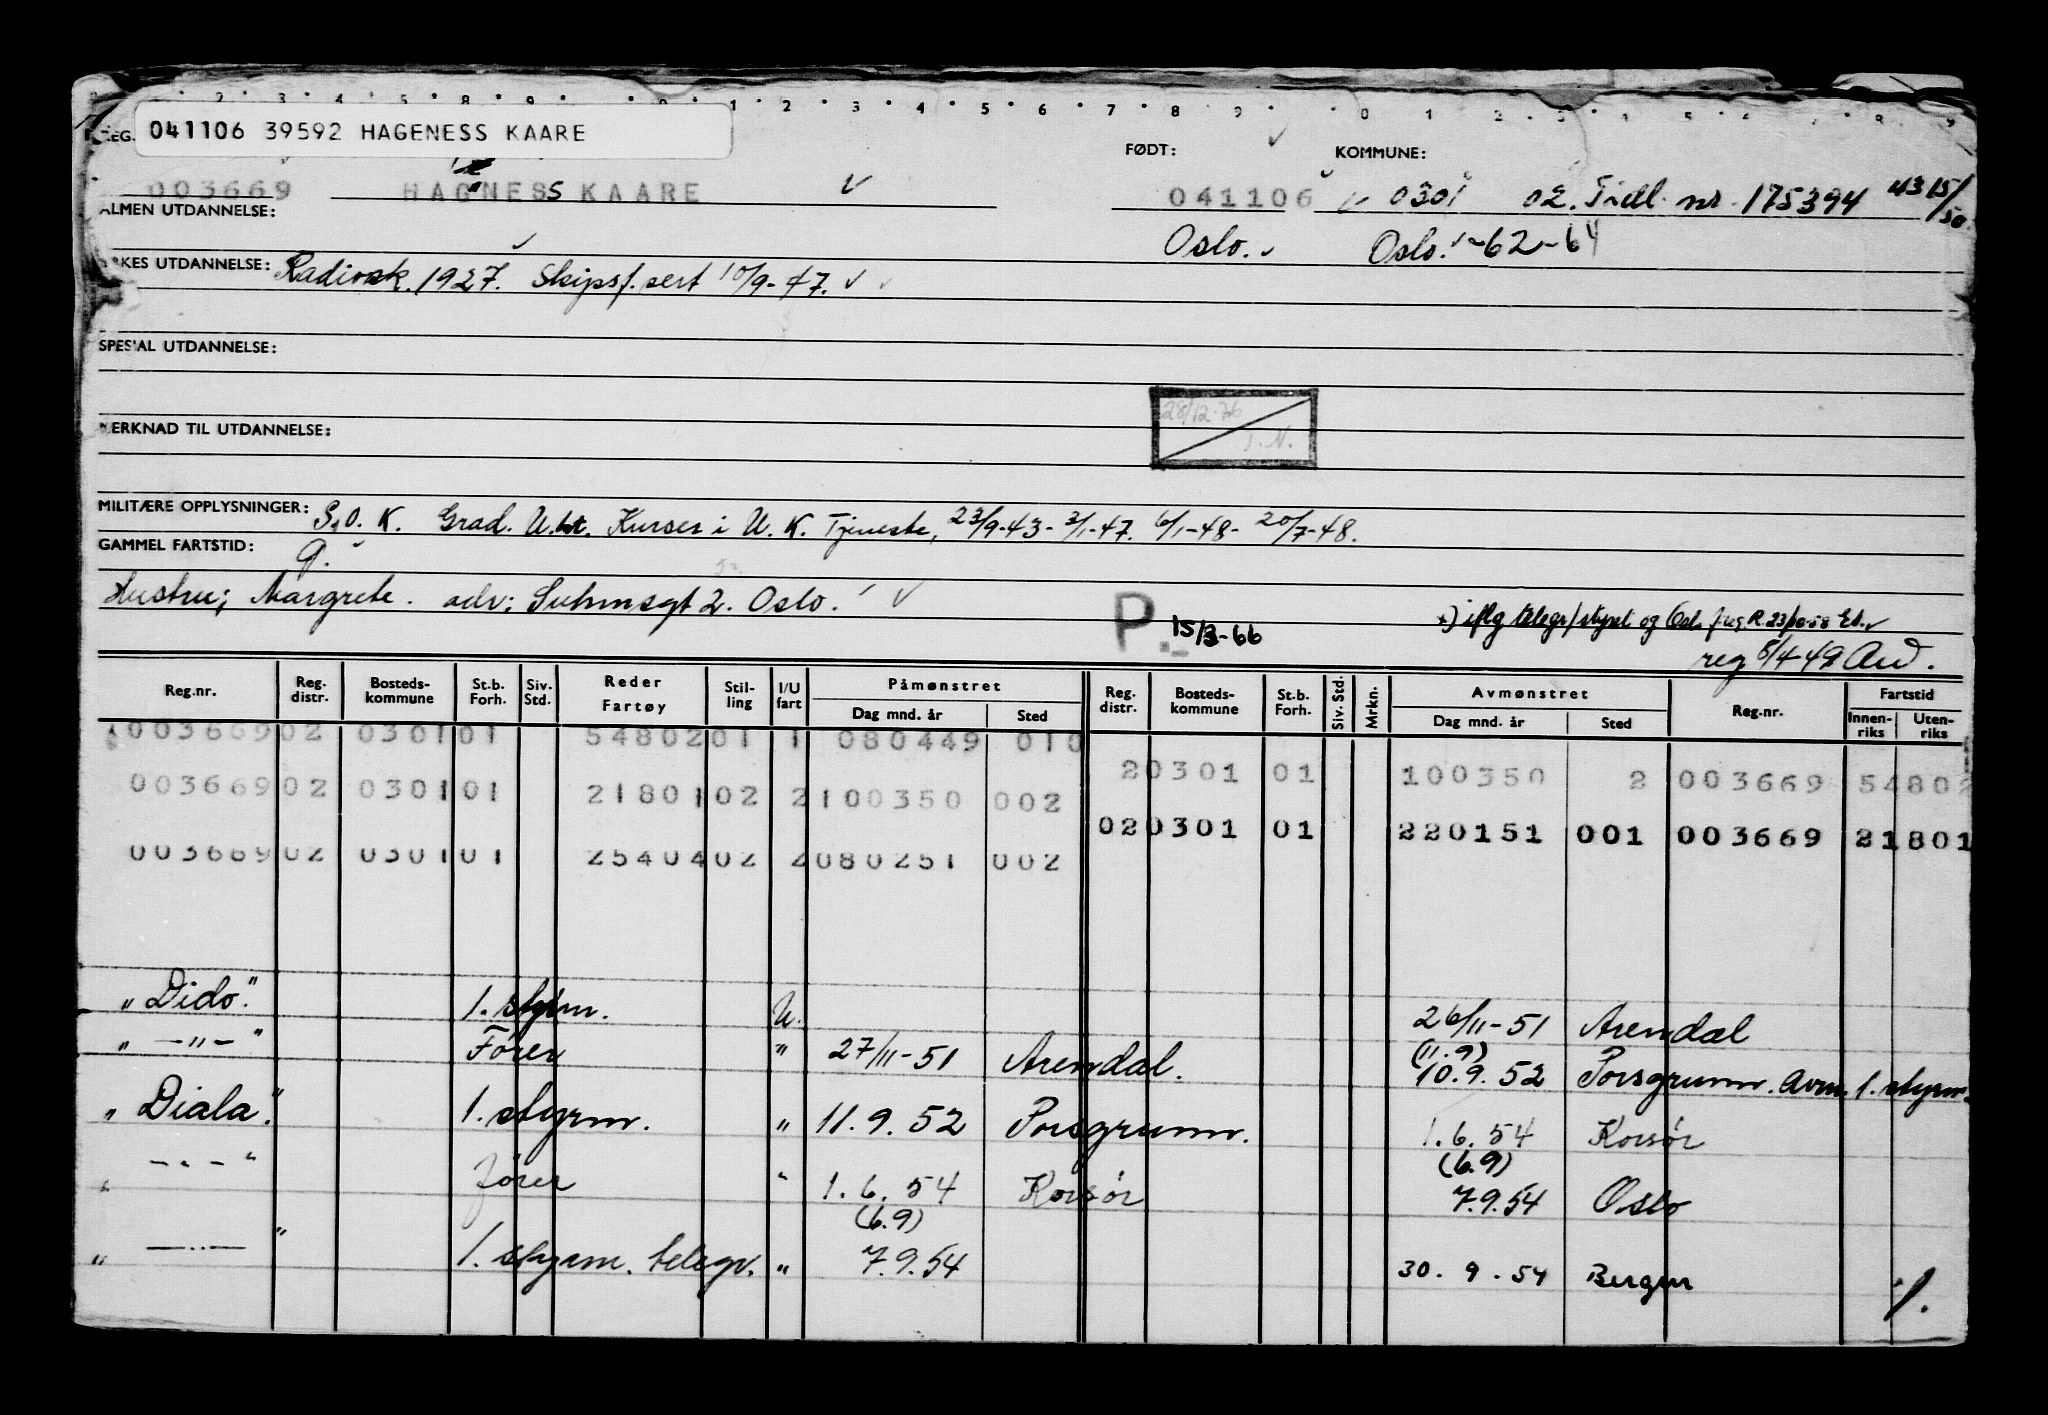 041106 39592 HAGENESS KAARE
FØDT: KOMMUNE:
003669 HAGNESS KAARE 041106 0301 02. Tidl. nr. 175394 15/50
ALMEN UTDANNELSE: Oslo. Oslo. -62-64
YRKES UTDANNELSE: Radiosk. 1927. Skipsf. sert 10/9-47.
SPESIAL UTDANNELSE:
28/12-76
MERKNAD TIL UTDANNELSE:
MILITÆRE OPPLYSNINGER: S.O.K. Grad. Kurser i U.K. Tjeneste, 23/9-43- 3/1-47. 6/1-48- 20/7-48.
GAMMEL FARTSTID: 9.
Hustru; Margrete. adr: Suhmsgt 2. Oslo.
P. 15/3-66
x) iflg telegr/styret og
reg 8/4-49
Reg.nr. Reg. distr. Bosteds-kommune St.b. Forh. Siv. Std. Reder Fartøy Stil-ling I/U fart Påmønstret Dag mnd. år Sted Reg. distr. Bosteds-kommune St.b. Forh. Siv. Std. Mrkn. Avmønstret Dag mnd. år Sted Reg.nr. Fartstid Innen-riks Uten-riks
003669 02 0301 01 54802 01 1 080449 010
20301 01 100350 2 003669 54802
003669 02 0301 01 21801 02 2 100350 002
020301 01 220151 001 003669 21801
003669 02 0301 01 25404 02 2 080251 002
"Dido." 1. styrm. U. 26/11-51 Arendal
" -"- " Fører " 27/11-51 Arendal. (11.9) 10.9.52 Porsgrunn. Avm. 1. styrm.
"Diala." 1. styrm. " 11.9.52 Porsgrunn. 1.6.54 Korsør
" -"- " fører " 1.6.54 Korsør (6.9) 7.9.54 Oslo
" -"- " 1. styrm. telegr. " (6.9) 7.9.54 30.9.54 Bergen
1.